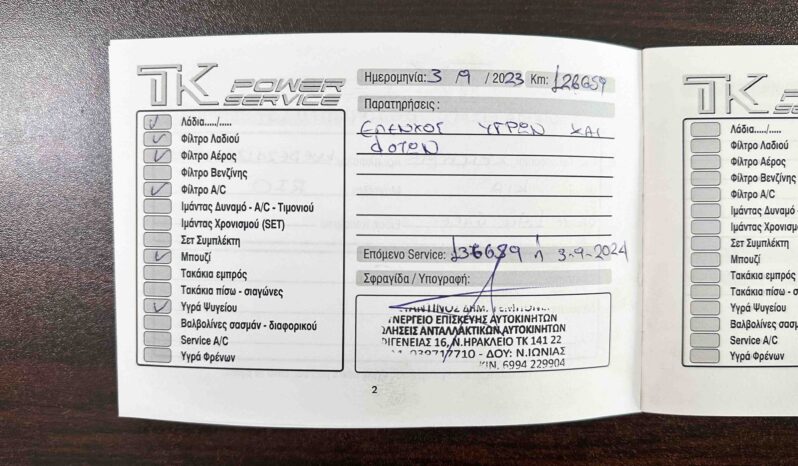 TK POWER SERVICE
Ημερομηνία: 3 / 9 / 2023 Km: 126659
Παρατηρήσεις :
ΕΛΕΝΧΟΣ ΥΓΡΩΝ ΚΑΙ
ΦΩΤΩΝ
Λάδια...../.....
Φίλτρο Λαδιού
Φίλτρο Αέρος
Φίλτρο Βενζίνης
Φίλτρο A/C
Ιμάντας Δυναμό - A/C - Τιμονιού
Ιμάντας Χρονισμού (SET)
Σετ Συμπλέκτη
Μπουζί
Τακάκια εμπρός
Τακάκια πίσω - σιαγώνες
Υγρά Ψυγείου
Βαλβολίνες σασμάν - διαφορικού
Service A/C
Υγρά Φρένων
Επόμενο Service: 136659 ή 3-9-2024
Σφραγίδα / Υπογραφή:
ΝΕΡΓΕΙΟ ΕΠΙΣΚΕΥΗΣ ΑΥΤΟΚΙΝΗΤΩΝ
ΛΗΣΕΙΣ ΑΝΤΑΛΛΑΚΤΙΚΩΝ ΑΥΤΟΚΙΝΗΤΩΝ
ΙΓΕΝΕΙΑΣ 16, Ν.ΗΡΑΚΛΕΙΟ ΤΚ 141 22
ΔΟΥ: Ν.ΙΩΝΙΑΣ
ΚΙΝ. 6994 229904
2
TK
Λάδια...../.....
Φίλτρο Λαδιού
Φίλτρο Αέρος
Φίλτρο Βενζίνης
Φίλτρο A/C
Ιμάντας Δυναμό
Ιμάντας Χρονισμ
Σετ Συμπλέκτη
Μπουζί
Τακάκια εμπρός
Τακάκια πίσω - σ
Υγρά Ψυγείου
Βαλβολίνες σασμ
Service A/C
Υγρά Φρένων